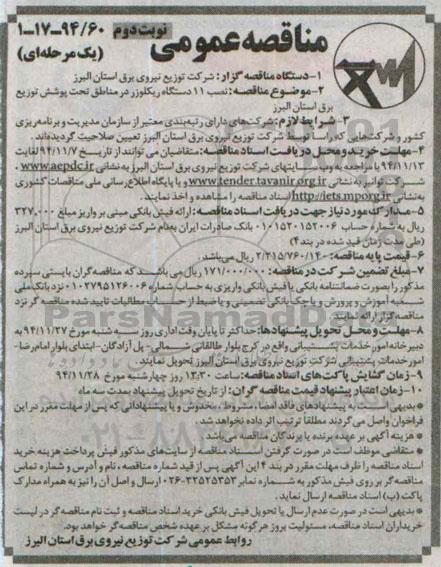 مناقصه عمومی
نوبت دوم
۱-۱۷-۹۴/۶۰
(یک مرحله‌ای)
۱-دستگاه مناقصه گزار: شرکت توزیع نیروی برق استان البرز
۲-موضوع مناقصه: نصب ۱۱ دستگاه ریکلوزر در مناطق تحت پوشش توزیع
برق استان البرز
۳- شرایط لازم: شرکت‌های دارای رتبه‌بندی معتبر از سازمان مدیریت و برنامه‌ریزی
کشور و شرکت‌هایی که راساً توسط شرکت توزیع نیروی برق استان البرز تعیین صلاحیت گردیده‌اند.
۴-مهلت خرید و محل دریافت اسناد مناقصه: متقاضیان می توانند از تاریخ ۹۴/۱۱/۷ لغایت
۹۴/۱۱/۱۳ با مراجعه به وب سایتهای شرکت توزیع نیروی برق استان البرز به نشانی www.aepdc.ir ،
شرکت توانیر به نشانی www.tender.tavanir.org.ir و یا پایگاه اطلاع رسانی ملی مناقصات کشوری
به نشانی http://iets.mporg.ir اسناد مناقصه را مشاهده و اخذ نمایند.
۵-مدارک مورد نیاز جهت دریافت اسناد مناقصه: ارائه فیش بانکی مبنی بر واریز مبلغ ۳۲۷,۰۰۰
ریال به شماره حساب ۰۱۰۱۵۲۰۱۵۲۰۰۶ بانک صادرات ایران به‌نام شرکت توزیع نیروی برق استان البرز
(طی مدت زمان قید شده در بند ۴)
۶-قیمت پایه مناقصه: ۲/۲۱۵/۷۶۰/۱۴۰ ریال می‌باشد.
۷-مبلغ تضمین شرکت در مناقصه: ۱۷۱/۰۰۰/۰۰۰ ریال می باشد که مناقصه‌گران بایستی سپرده
مذکور را بصورت ضمانتنامه بانکی یا فیش بانکی واریزی به حساب شماره ۰۱۰۲۷۹۵۱۲۶۰۰۶ نزد بانک ملی
شعبه آموزش و پرورش و یا چک بانکی تضمینی و یا ضبط از حساب مطالبات تایید شده مناقصه گر نزد
مناقصه گزار ارائه نمایند.
۸-مهلت و محل تحویل پیشنهادها: حداکثر تا پایان وقت اداری روز سه شنبه مورخ ۹۴/۱۱/۲۷ به
دبیرخانه امور خدمات پشتیبانی واقع در کرج بلوار طالقانی شمالی- پل آزادگان- ابتدای بلوار امام رضا-
امور خدمات پشتیبانی شرکت توزیع نیروی برق استان البرز تحویل نمایند.
۹-زمان گشایش پاکت‌های اسناد مناقصه: ساعت ۱۳:۳۰ روز چهارشنبه مورخ ۹۴/۱۱/۲۸
۱۰-زمان اعتبار پیشنهاد قیمت مناقصه گران: از تاریخ تحویل پیشنهاد بمدت سه ماه
* بدیهی است به پیشنهادهای فاقد امضا، مشروط، مخدوش و یا پیشنهاداتی که پس از مهلت مقرر در این
فراخوان واصل می‌گردند مطلقاً ترتیب اثر داده نخواهد شد.
* هزینه آگهی بر عهده برنده یا برندگان مناقصه می‌باشد.
* متقاضی موظف است در صورت گرفتن اسناد مناقصه از سایت‌های مذکور فیش پرداخت هزینه خرید
اسناد مناقصه را ظرف مهلت مقرر در بند ۴ این آگهی پس از قید شماره مناقصه، نام و آدرس و شماره تماس
مناقصه‌گر بر روی فیش مذکور به شماره نمابر ۳۳۵۲۵۳۵۳-۰۲۶ ارسال و اصل آن را نیز به همراه مدارک
پاکت (ب) اسناد مناقصه ارسال نماید.
* بدیهی است در صورت عدم ارسال یا تحویل فیش بانکی خرید اسناد مناقصه و ثبت نام مناقصه گر در لیست
خریداران اسناد مناقصه، مسئولیت بروز هرگونه مشکل بر عهده شخص مناقصه‌گر خواهد بود.
روابط عمومی شرکت توزیع نیروی برق استان البرز
ParsNamadData